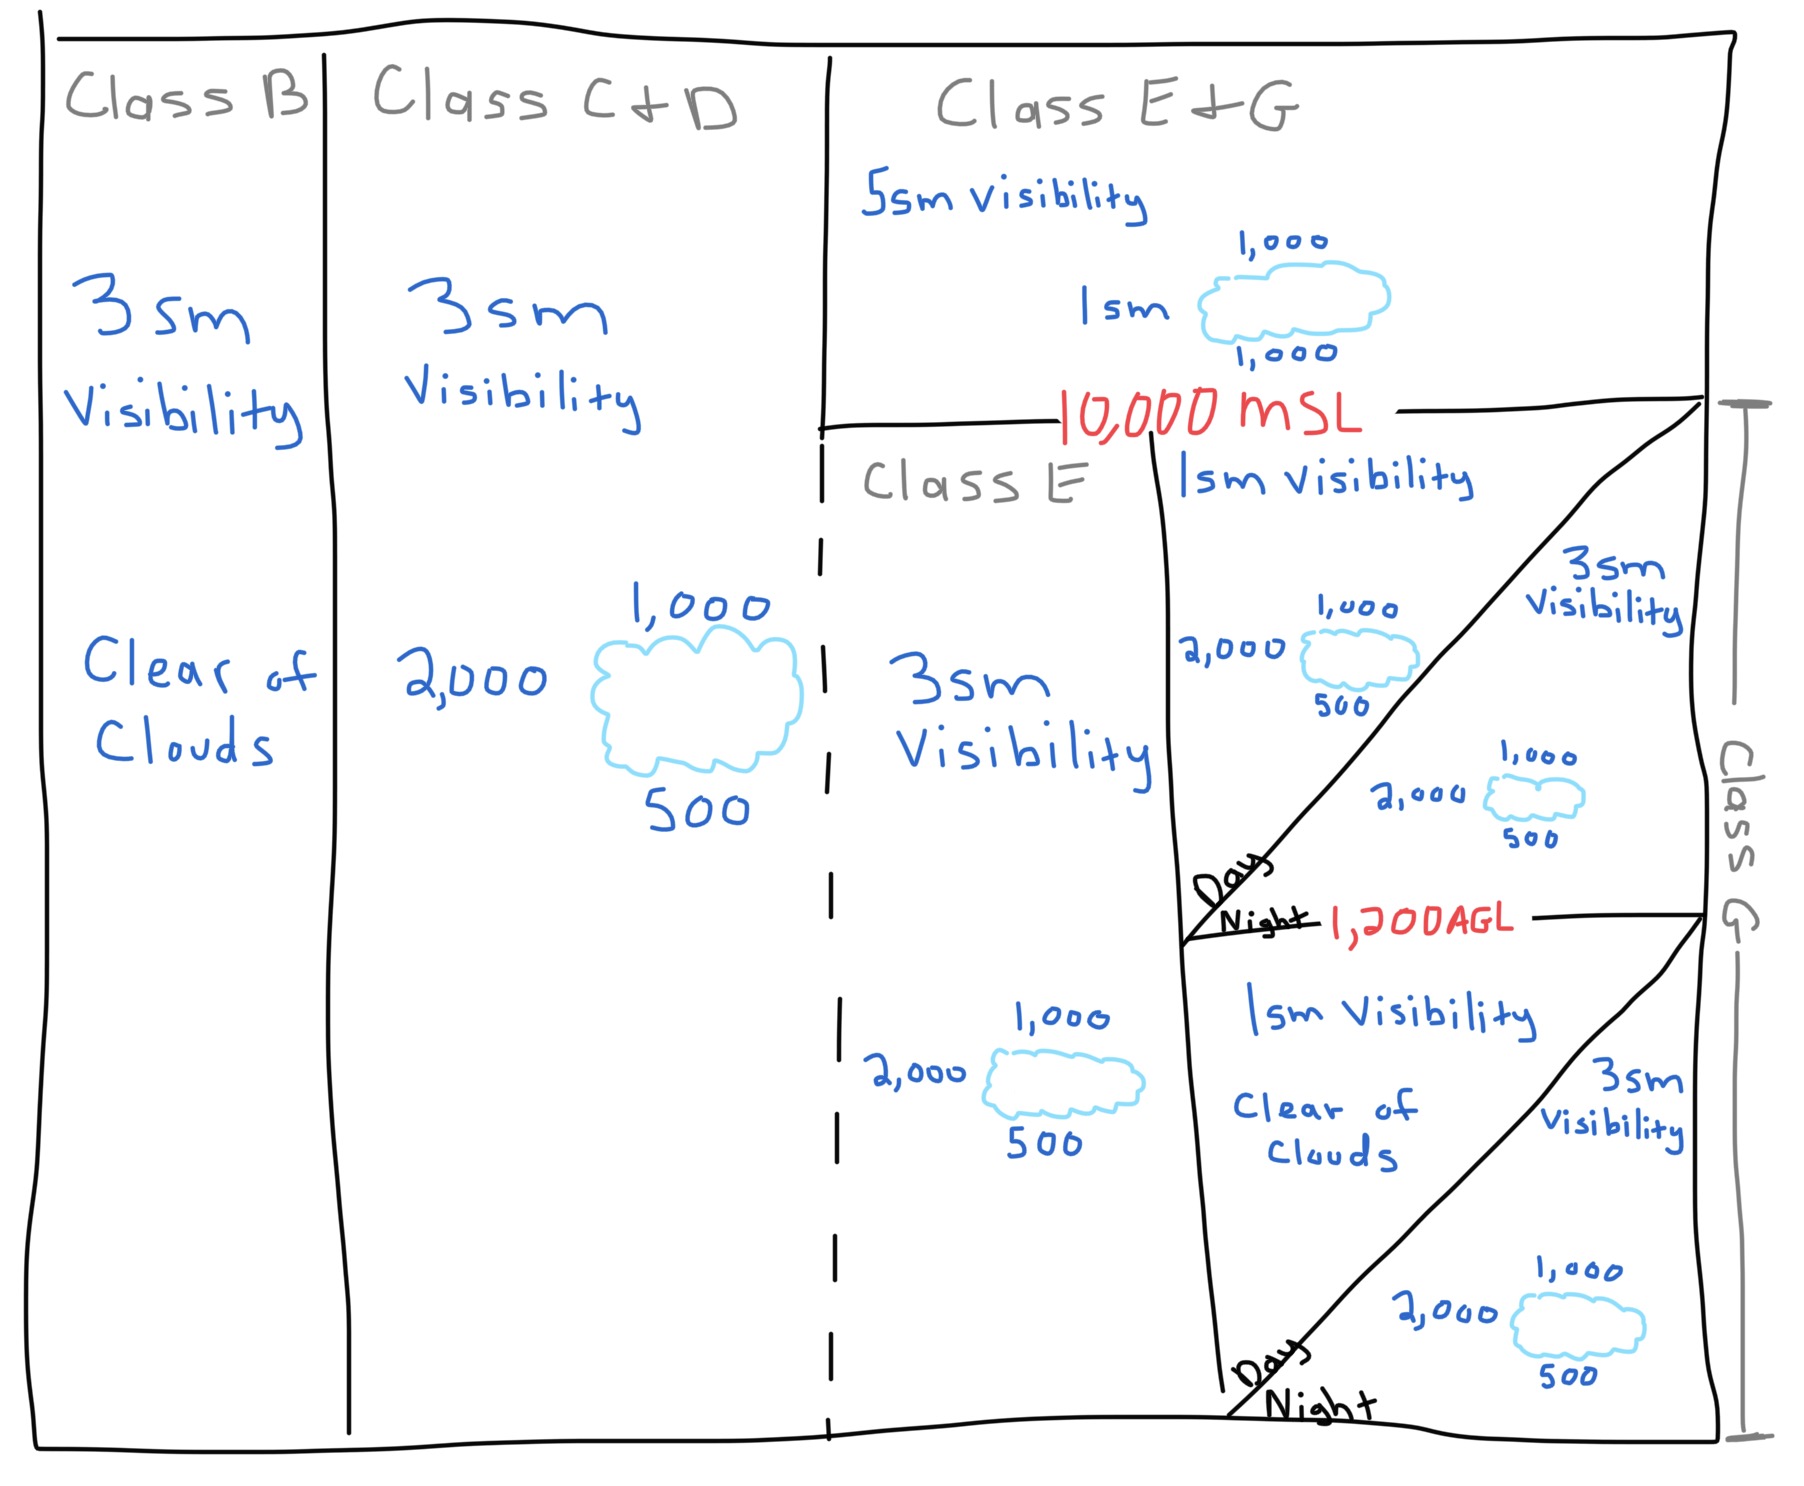 Class B
3 sm
Visibility
Clear of
Clouds
Class C+D
3 sm
Visibility
1,000
2,000
500
Class E+G
5sm Visibility
1,000
1sm
1,000
10,000 MSL
Class E
3sm
Visibility
1,000
2,000
500
1sm Visibility
1,000
2,000
500
Day
3sm
Visibility
1,000
2,000
500
Night
1,200AGL
1sm Visibility
Clear of
Clouds
Day
3sm
Visibility
1,000
2,000
500
Night
Class G